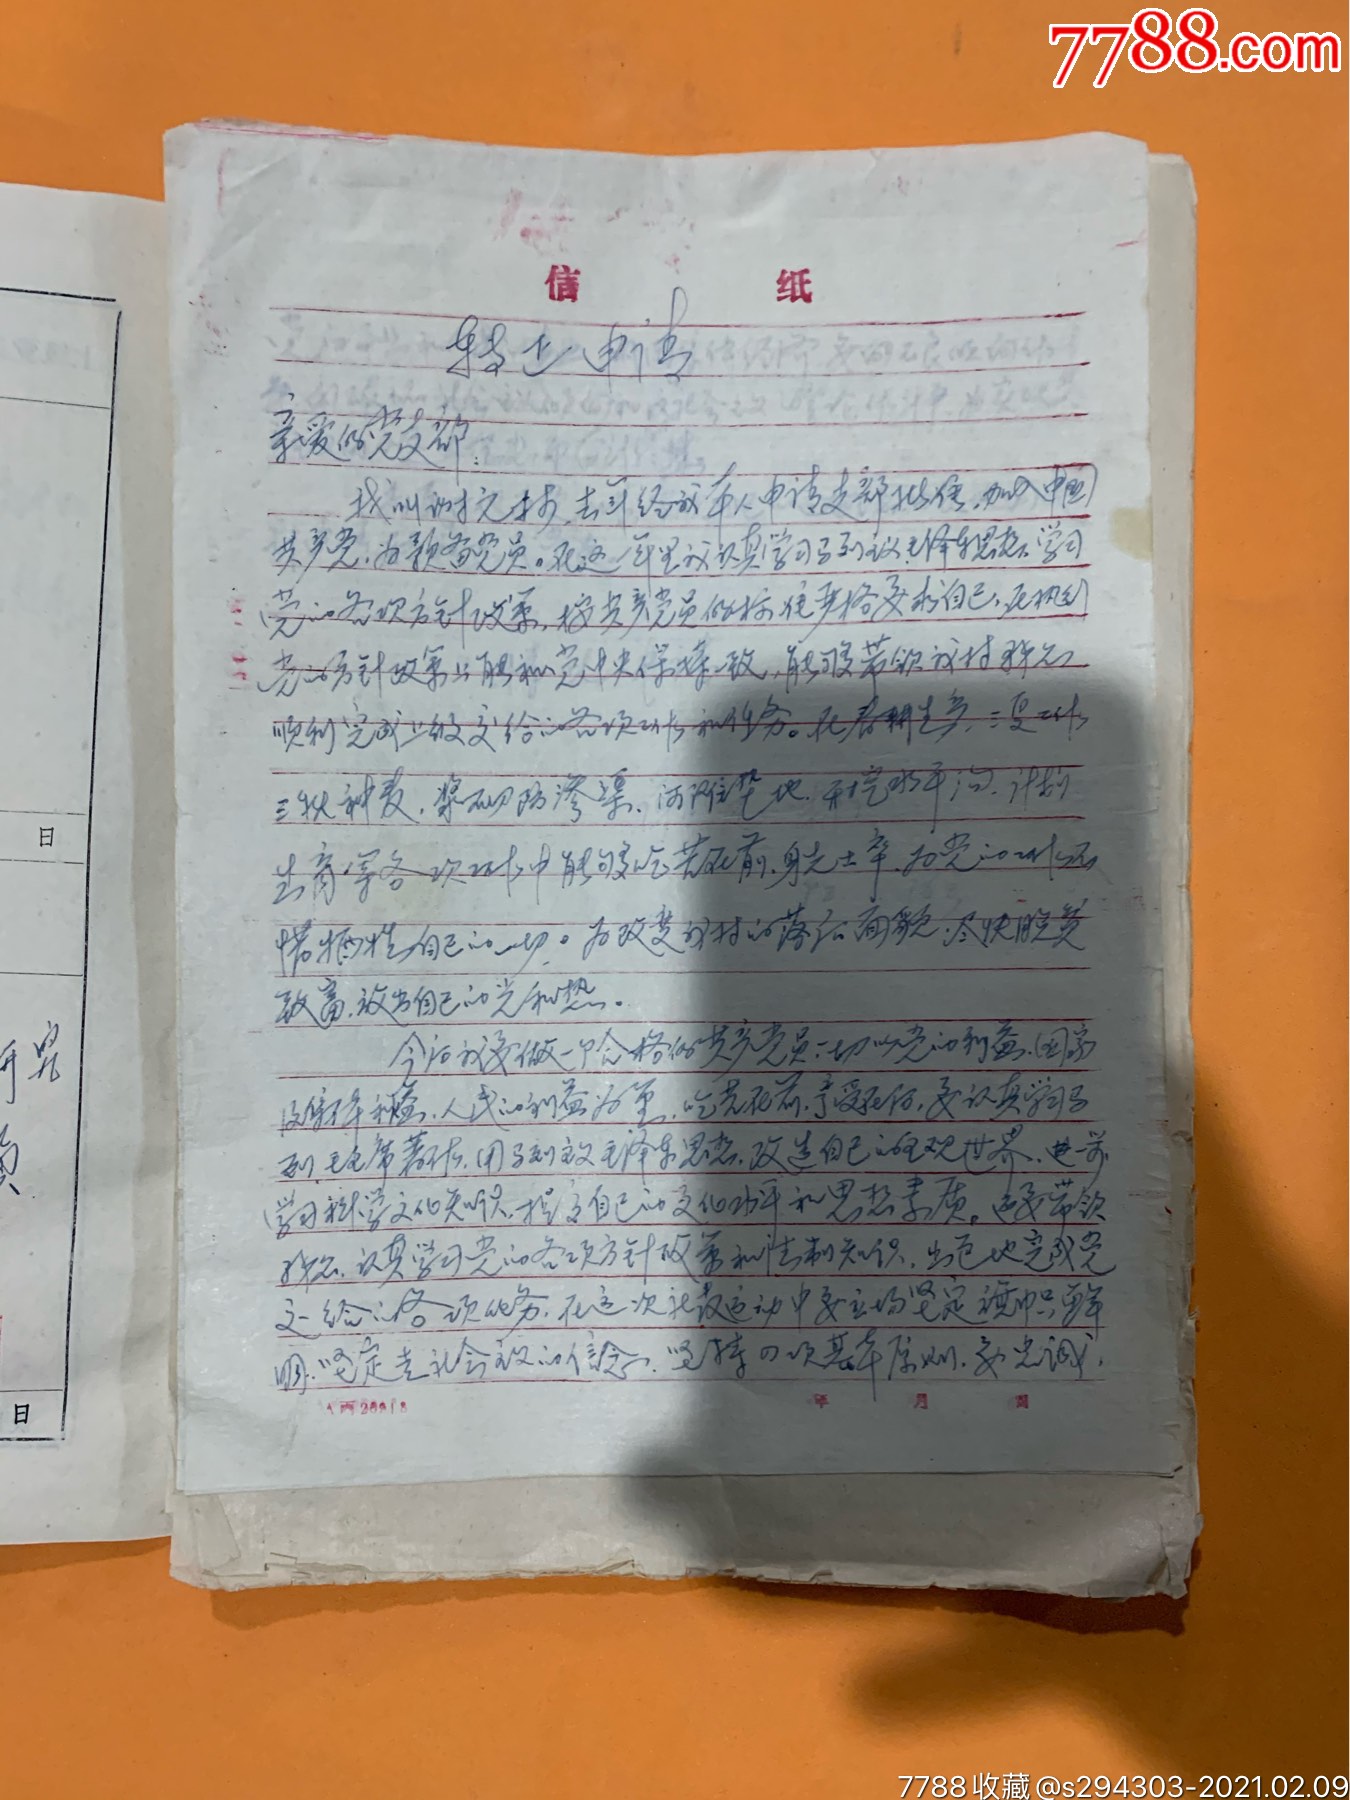 7788.com
信 纸
转正申请
亲爱的党支部:
我叫谢元才,去年经我本人申请支部批准,加入中国
共产党,为预备党员。在这一年里我认真学习马列主义毛泽东思想,学习
党的各项方针政策,按共产党员的标准严格要求自己,在执行
党的方针政策上能和党中央保持一致,能够带领我村群众
顺利完成上级交给的各项工作和任务。在春耕生产,三夏工作
三秋种麦,浆砌防渗渠,河滩垫地,水平沟,计划
生育等各项工作中能够吃苦在前,身先士卒,为党的工作不
惜牺牲自己的一切。为改变我村的落后面貌,尽快脱贫
致富,放出自己的光和热。
今后我要做一个合格的共产党员,一切以党的利益,国家
利益,人民的利益为重,吃苦在前,享受在后,要认真学习马
列,毛主席著作,用马列主义毛泽东思想,改造自己的主观世界,进一步
学习科学文化知识,提高自己的文化水平和思想素质。还要带领
群众,认真学习党的各项方针政策和法制知识,出色地完成党
交给的各项任务,在这次社教运动中要立场坚定旗帜鲜
明,坚定走社会主义的信念,坚持四项基本原则,要忠诚,
年 月 日
日
研究
员
日
7788收藏@s294303-2021.02.09